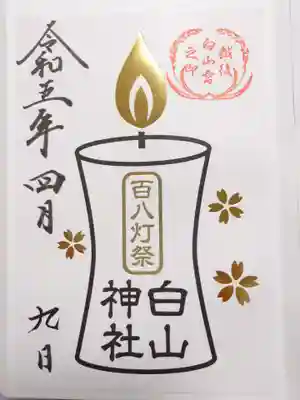 令和五年 四月
九日
越後
白山宮
之印
百八灯祭
白山
神社